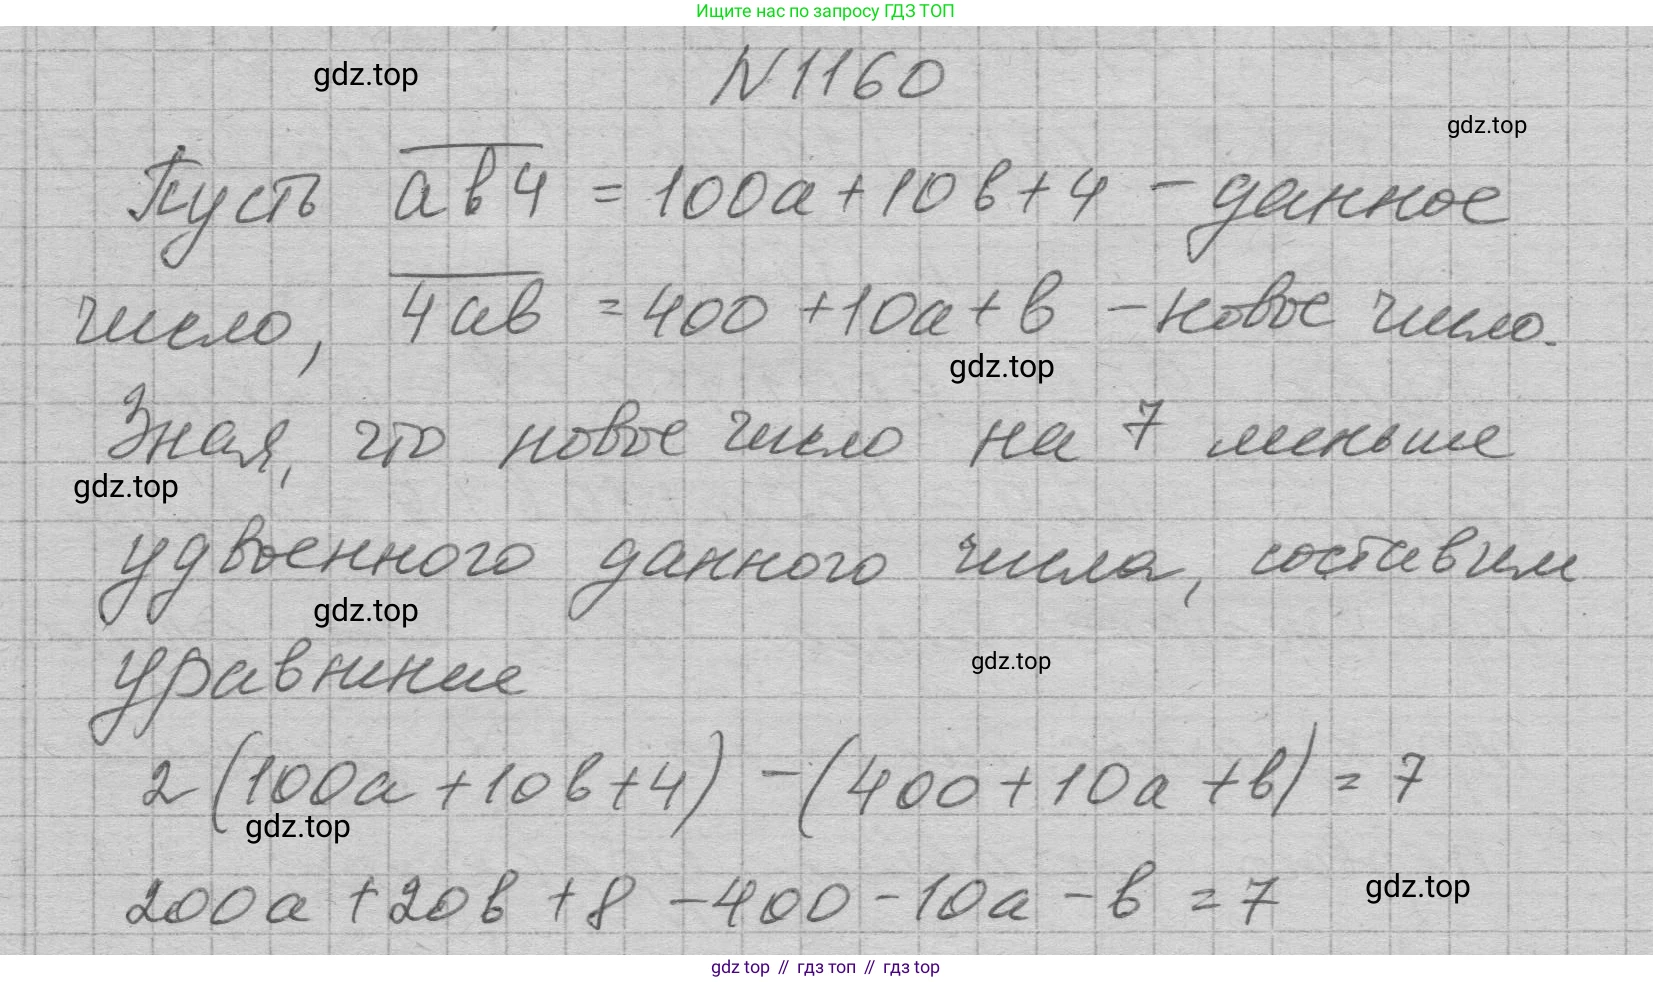 Ищите нас по запросу ГДЗ ТОП
gdz.top
N 1160
gdz.top
Пусть ав4 = 100а + 10в + 4 - данное
число, 4ав = 400 + 10а + в - новое число.
gdz.top
Зная, что новое число на 7 меньше
gdz.top
удвоенного данного числа, составим
gdz.top
уравнение
gdz.top
2(100а + 10в + 4) - (400 + 10а + в) = 7
gdz.top
200а + 20в + 8 - 400 - 10а - в = 7
gdz.top
gdz top // гдз топ // gdz top